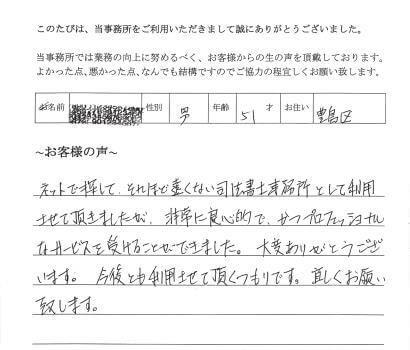 このたびは、当事務所をご利用いただきまして誠にありがとうございました。
当事務所では業務の向上に努めるべく、お客様からの生の声を頂戴しております。
よかった点、悪かった点、なんでも結構ですのでご協力の程宜しくお願い致します。
お名前 性別 男 年齢 51 才 お住い 豊島区
～お客様の声～
ネットで探して、それほど遠くない司法書士事務所として利用
させて頂きましたが、非常に良心的で、かつプロフェッショナル
なサービスを受けることができました。大変ありがとうござ
います。今後とも利用させて頂くつもりです。宜しくお願い
致します。